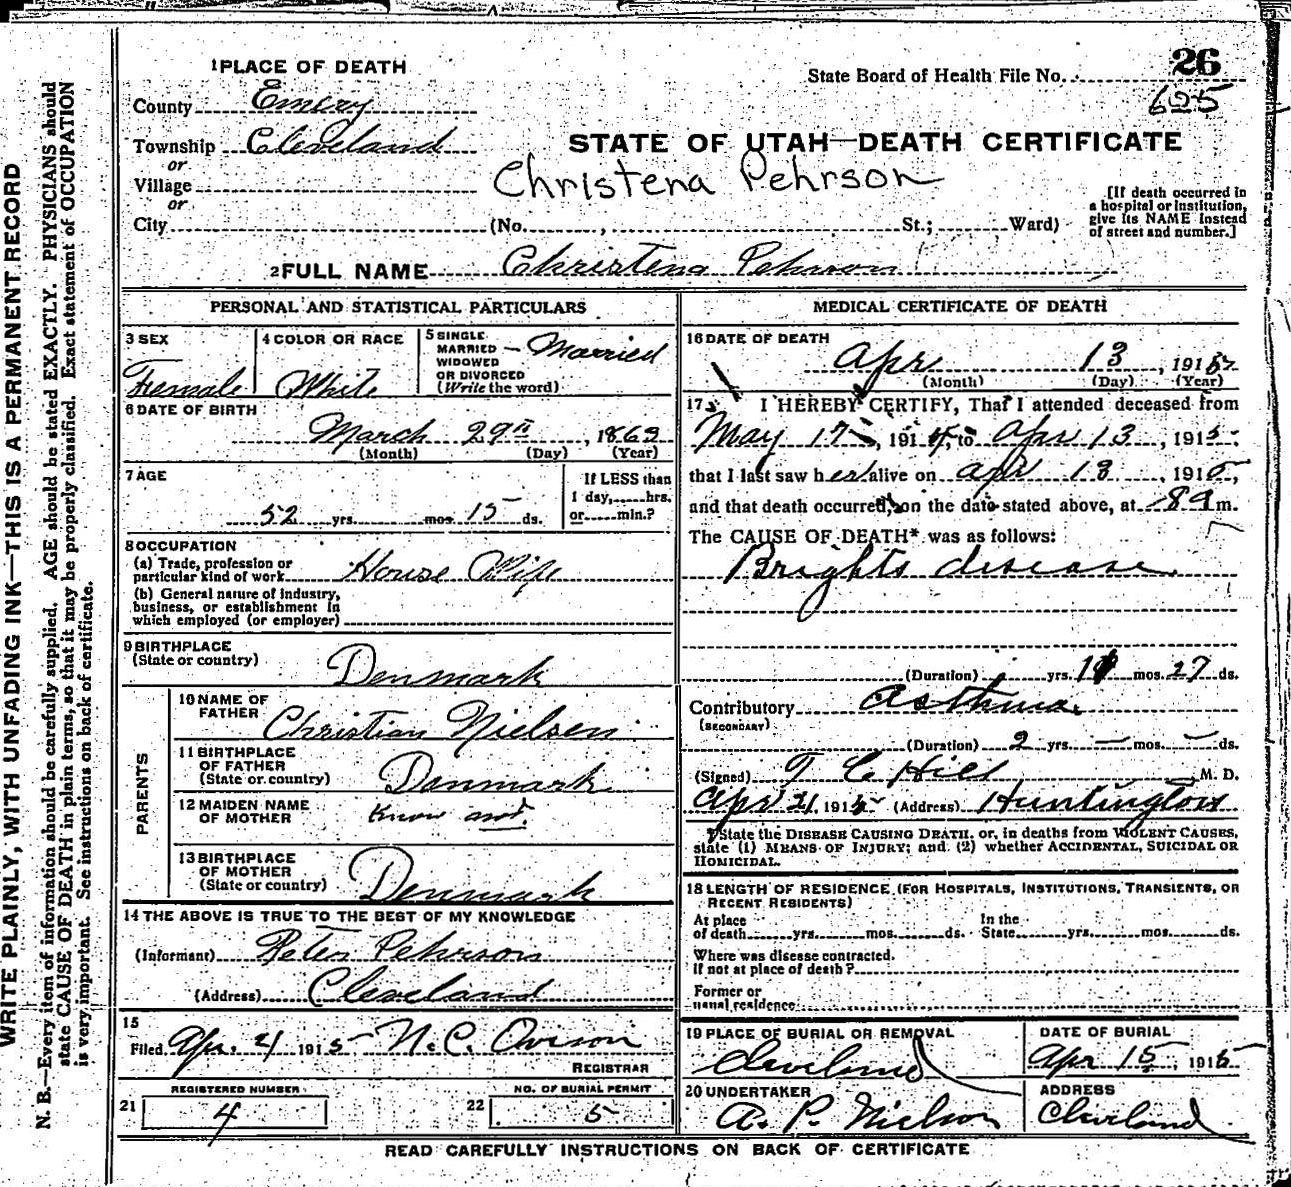 26
1 PLACE OF DEATH
State Board of Health File No.
625
County Emery
Township Cleveland
STATE OF UTAH—DEATH CERTIFICATE
or
Village
Christena Pehrson
or
City (No. , St.; Ward)
[If death occurred in
a hospital or institution,
give its NAME instead
of street and number.]
2 FULL NAME Christena Pehrson
PERSONAL AND STATISTICAL PARTICULARS
3 SEX
Female
4 COLOR OR RACE
White
5 SINGLE
MARRIED
WIDOWED
OR DIVORCED
(Write the word)
Married
6 DATE OF BIRTH
March 29th, 1863
(Month) (Day) (Year)
7 AGE
52 yrs. mos. 15 ds.
If LESS than
1 day, hrs.
or min.?
8 OCCUPATION
(a) Trade, profession or
particular kind of work House Wife
(b) General nature of industry,
business, or establishment in
which employed (or employer)
9 BIRTHPLACE
(State or country)
Denmark
PARENTS
10 NAME OF
FATHER
Christian Nielsen
11 BIRTHPLACE
OF FATHER
(State or country)
Denmark
12 MAIDEN NAME
OF MOTHER
Know not
13 BIRTHPLACE
OF MOTHER
(State or country)
Denmark
14 THE ABOVE IS TRUE TO THE BEST OF MY KNOWLEDGE
(Informant) Peter Pehrson
(Address) Cleveland
15
Filed Apr. 21 1915 N. C. Ovison
REGISTRAR
REGISTERED NUMBER
21 4
NO. OF BURIAL PERMIT
22 5
MEDICAL CERTIFICATE OF DEATH
16 DATE OF DEATH
Apr 13, 1915
(Month) (Day) (Year)
17 I HEREBY CERTIFY, That I attended deceased from
May 17, 1914, to Apr 13, 1915,
that I last saw her alive on Apr 13, 1915,
and that death occurred, on the date stated above, at 8 a m.
The CAUSE OF DEATH* was as follows:
Brights disease
(Duration) yrs. mos. 27 ds.
Contributory Asthma
(SECONDARY)
(Duration) 2 yrs. — mos. — ds.
(Signed) T C Hill M. D.
Apr 21, 1915 (Address) Huntington
*State the DISEASE CAUSING DEATH, or, in deaths from VIOLENT CAUSES,
state (1) MEANS OF INJURY; and (2) whether ACCIDENTAL, SUICIDAL OR
HOMICIDAL.
18 LENGTH OF RESIDENCE (FOR HOSPITALS, INSTITUTIONS, TRANSIENTS, OR
RECENT RESIDENTS)
At place
of death yrs. mos. ds.
In the
State yrs. mos. ds.
Where was disease contracted.
if not at place of death?
Former or
usual residence
19 PLACE OF BURIAL OR REMOVAL
Cleveland
DATE OF BURIAL
Apr 15, 1915
20 UNDERTAKER
A. P. Nielson
ADDRESS
Cleveland
READ CAREFULLY INSTRUCTIONS ON BACK OF CERTIFICATE
WRITE PLAINLY, WITH UNFADING INK—THIS IS A PERMANENT RECORD
N. B.—Every item of information should be carefully supplied. AGE should be stated EXACTLY. PHYSICIANS should
state CAUSE OF DEATH in plain terms, so that it may be properly classified. Exact statement of OCCUPATION
is very important. See instructions on back of certificate.